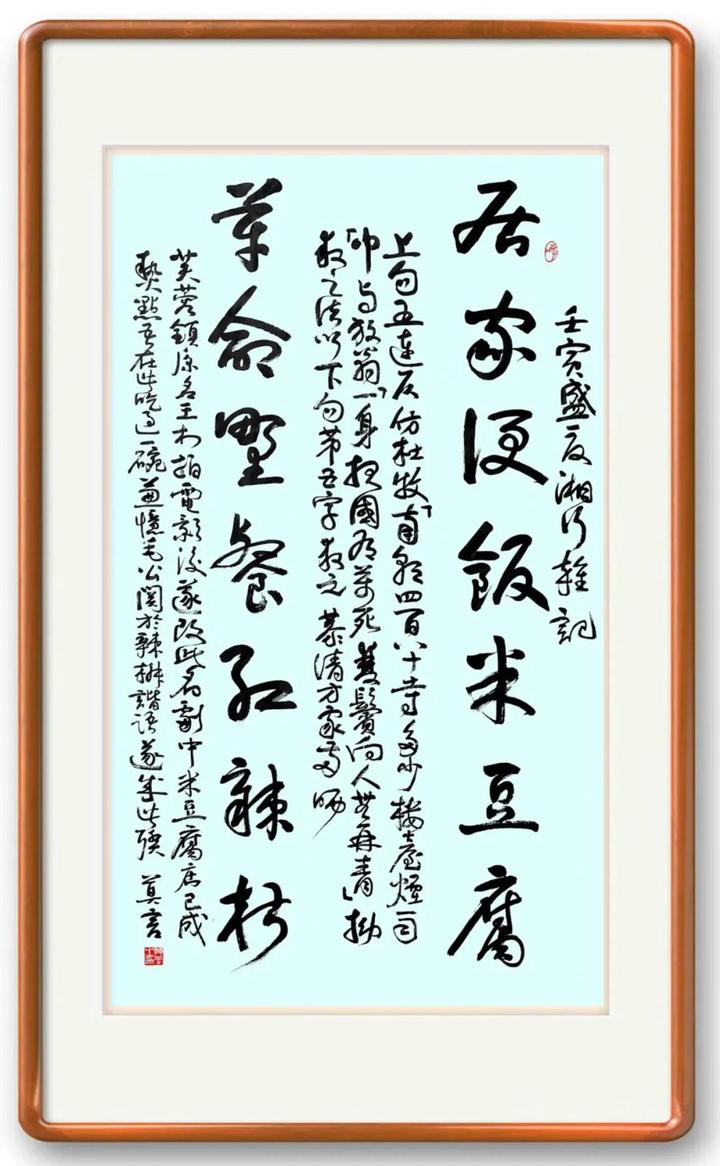 壬寅盛夏湘行雜記
居家便飯米豆腐
上句五連仄仿杜牧「南朝四百八十寺多少樓臺煙雨
中」與放翁「一身報國有萬死雙鬢向人無再青」拗
救之法以下句第五字救之恭請方家哂
革命野餐紅辣椒
芙蓉鎮原名王村拍電影後遂改此名劇中米豆腐店已成
熱點吾在此吃過一碗並憶毛公關於辣椒諧語遂成此聯 莫言